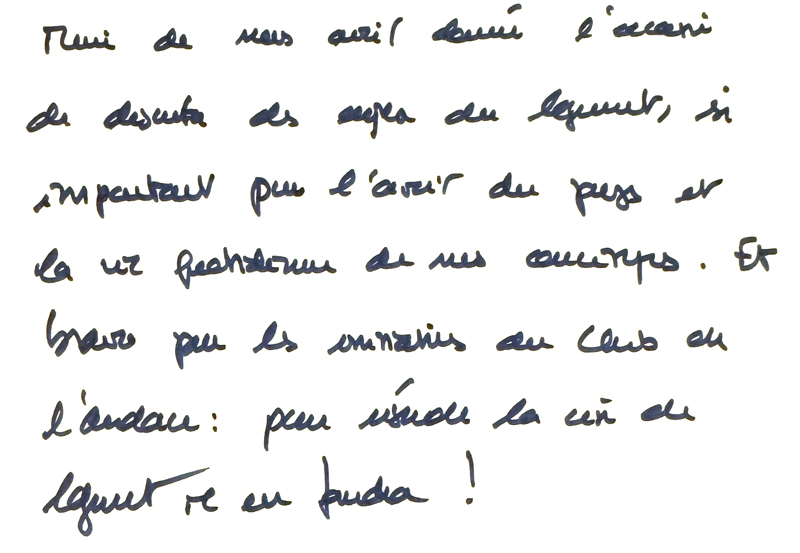 Merci de nous avoir donné l'occasion
de discuter des enjeux du logement, si
important pour l'avenir du pays et
la vie quotidienne de nos concitoyens. Et
bravo pour les initiatives du Club de
l'audace : pour résoudre la crise du
logement il en faudra !